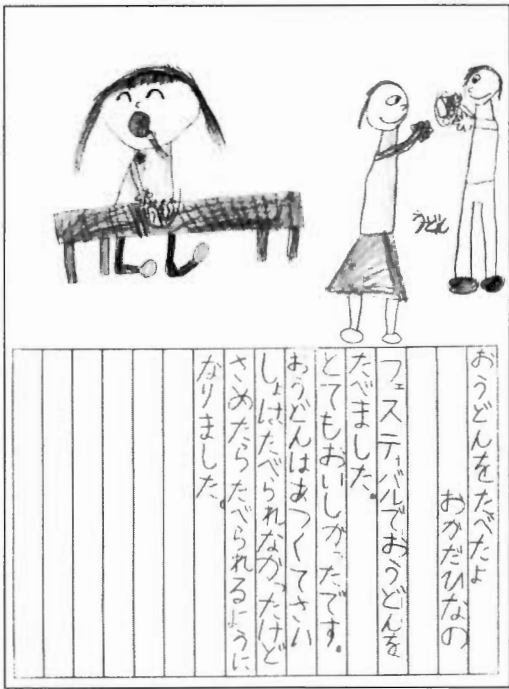 うどん
おうどんをたべたよ
おかだひなの
フェスティバルでおうどんを
たべました。
とてもおいしかったです。
おうどんはあつくてさい
しょは、たべられなかったけど
さめたらたべられるように
なりました。